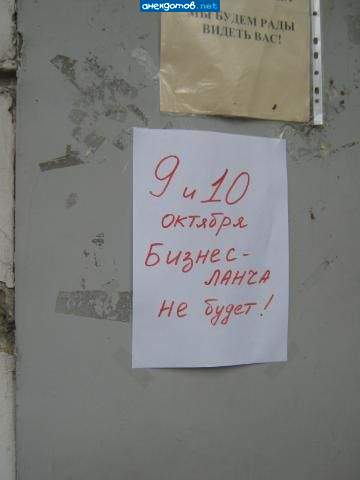 анекдотов.net
МЫ БУДЕМ РАДЫ
ВИДЕТЬ ВАС!
9 и 10
октября
Бизнес-
ЛАНЧА
не будет!